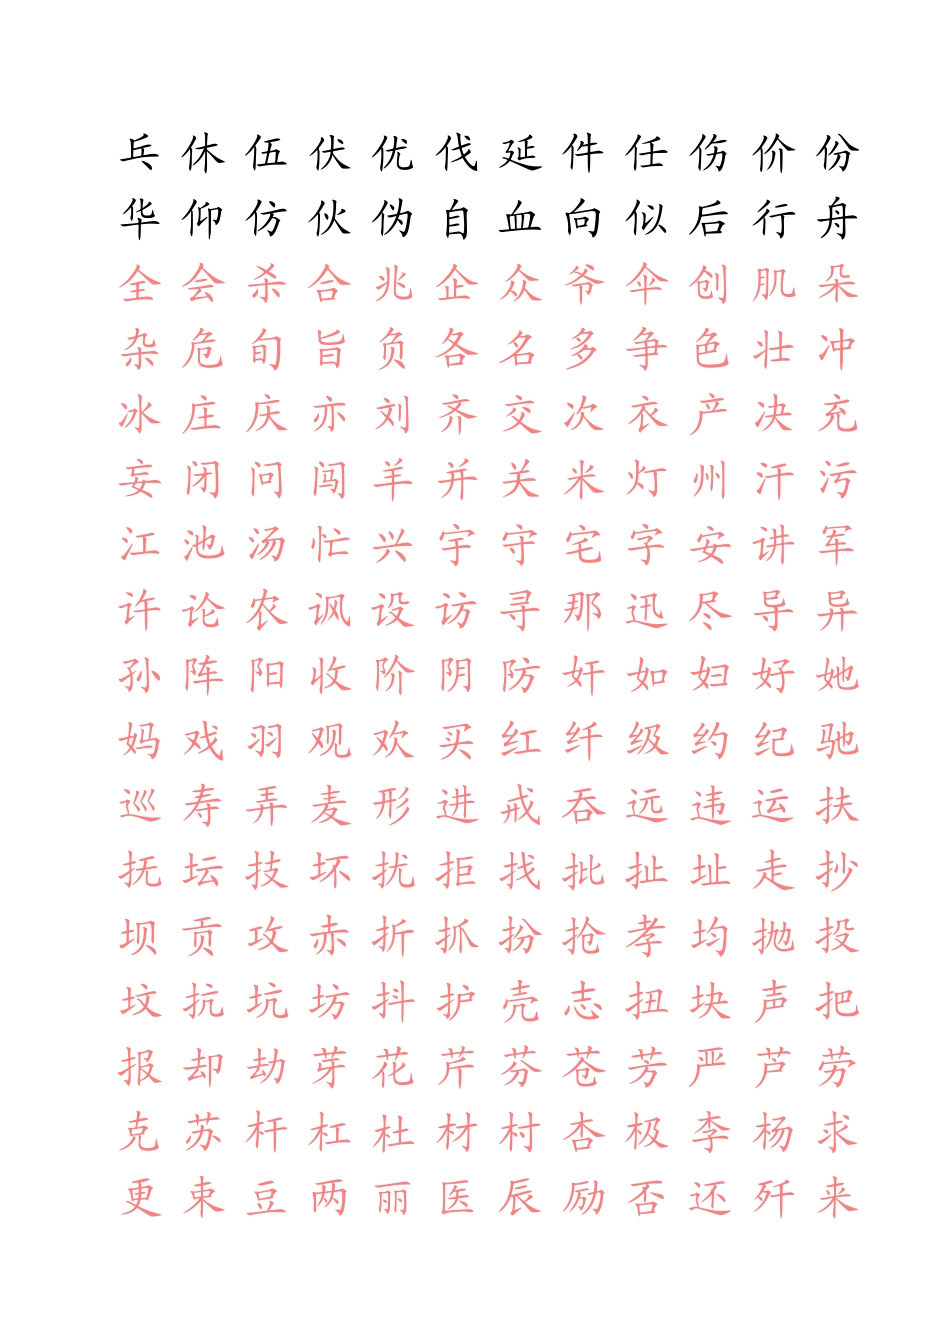 乓 休 伍 伏 优 伐 延 件 任 伤 价 份
华 仰 仿 伙 伪 自 血 向 似 后 行 舟
全 会 杀 合 兆 企 众 爷 伞 创 肌 朵
杂 危 旬 旨 负 各 名 多 争 色 壮 冲
冰 庄 庆 亦 刘 齐 交 次 衣 产 决 充
妄 闭 问 闯 羊 并 关 米 灯 州 汗 污
江 池 汤 忙 兴 宇 守 宅 字 安 讲 军
许 论 农 讽 设 访 寻 那 迅 尽 导 异
孙 阵 阳 收 阶 阴 防 奸 如 妇 好 她
妈 戏 羽 观 欢 买 红 纤 级 约 纪 驰
巡 寿 弄 麦 形 进 戒 吞 远 违 运 扶
抚 坛 技 坏 扰 拒 找 批 扯 址 走 抄
坝 贡 攻 赤 折 抓 扮 抢 孝 均 抛 投
坟 抗 坑 坊 抖 护 壳 志 扭 块 声 把
报 却 劫 芽 花 芹 芬 苍 芳 严 芦 劳
克 苏 杆 杠 杜 材 村 杏 极 李 杨 求
更 束 豆 两 丽 医 辰 励 否 还 歼 来